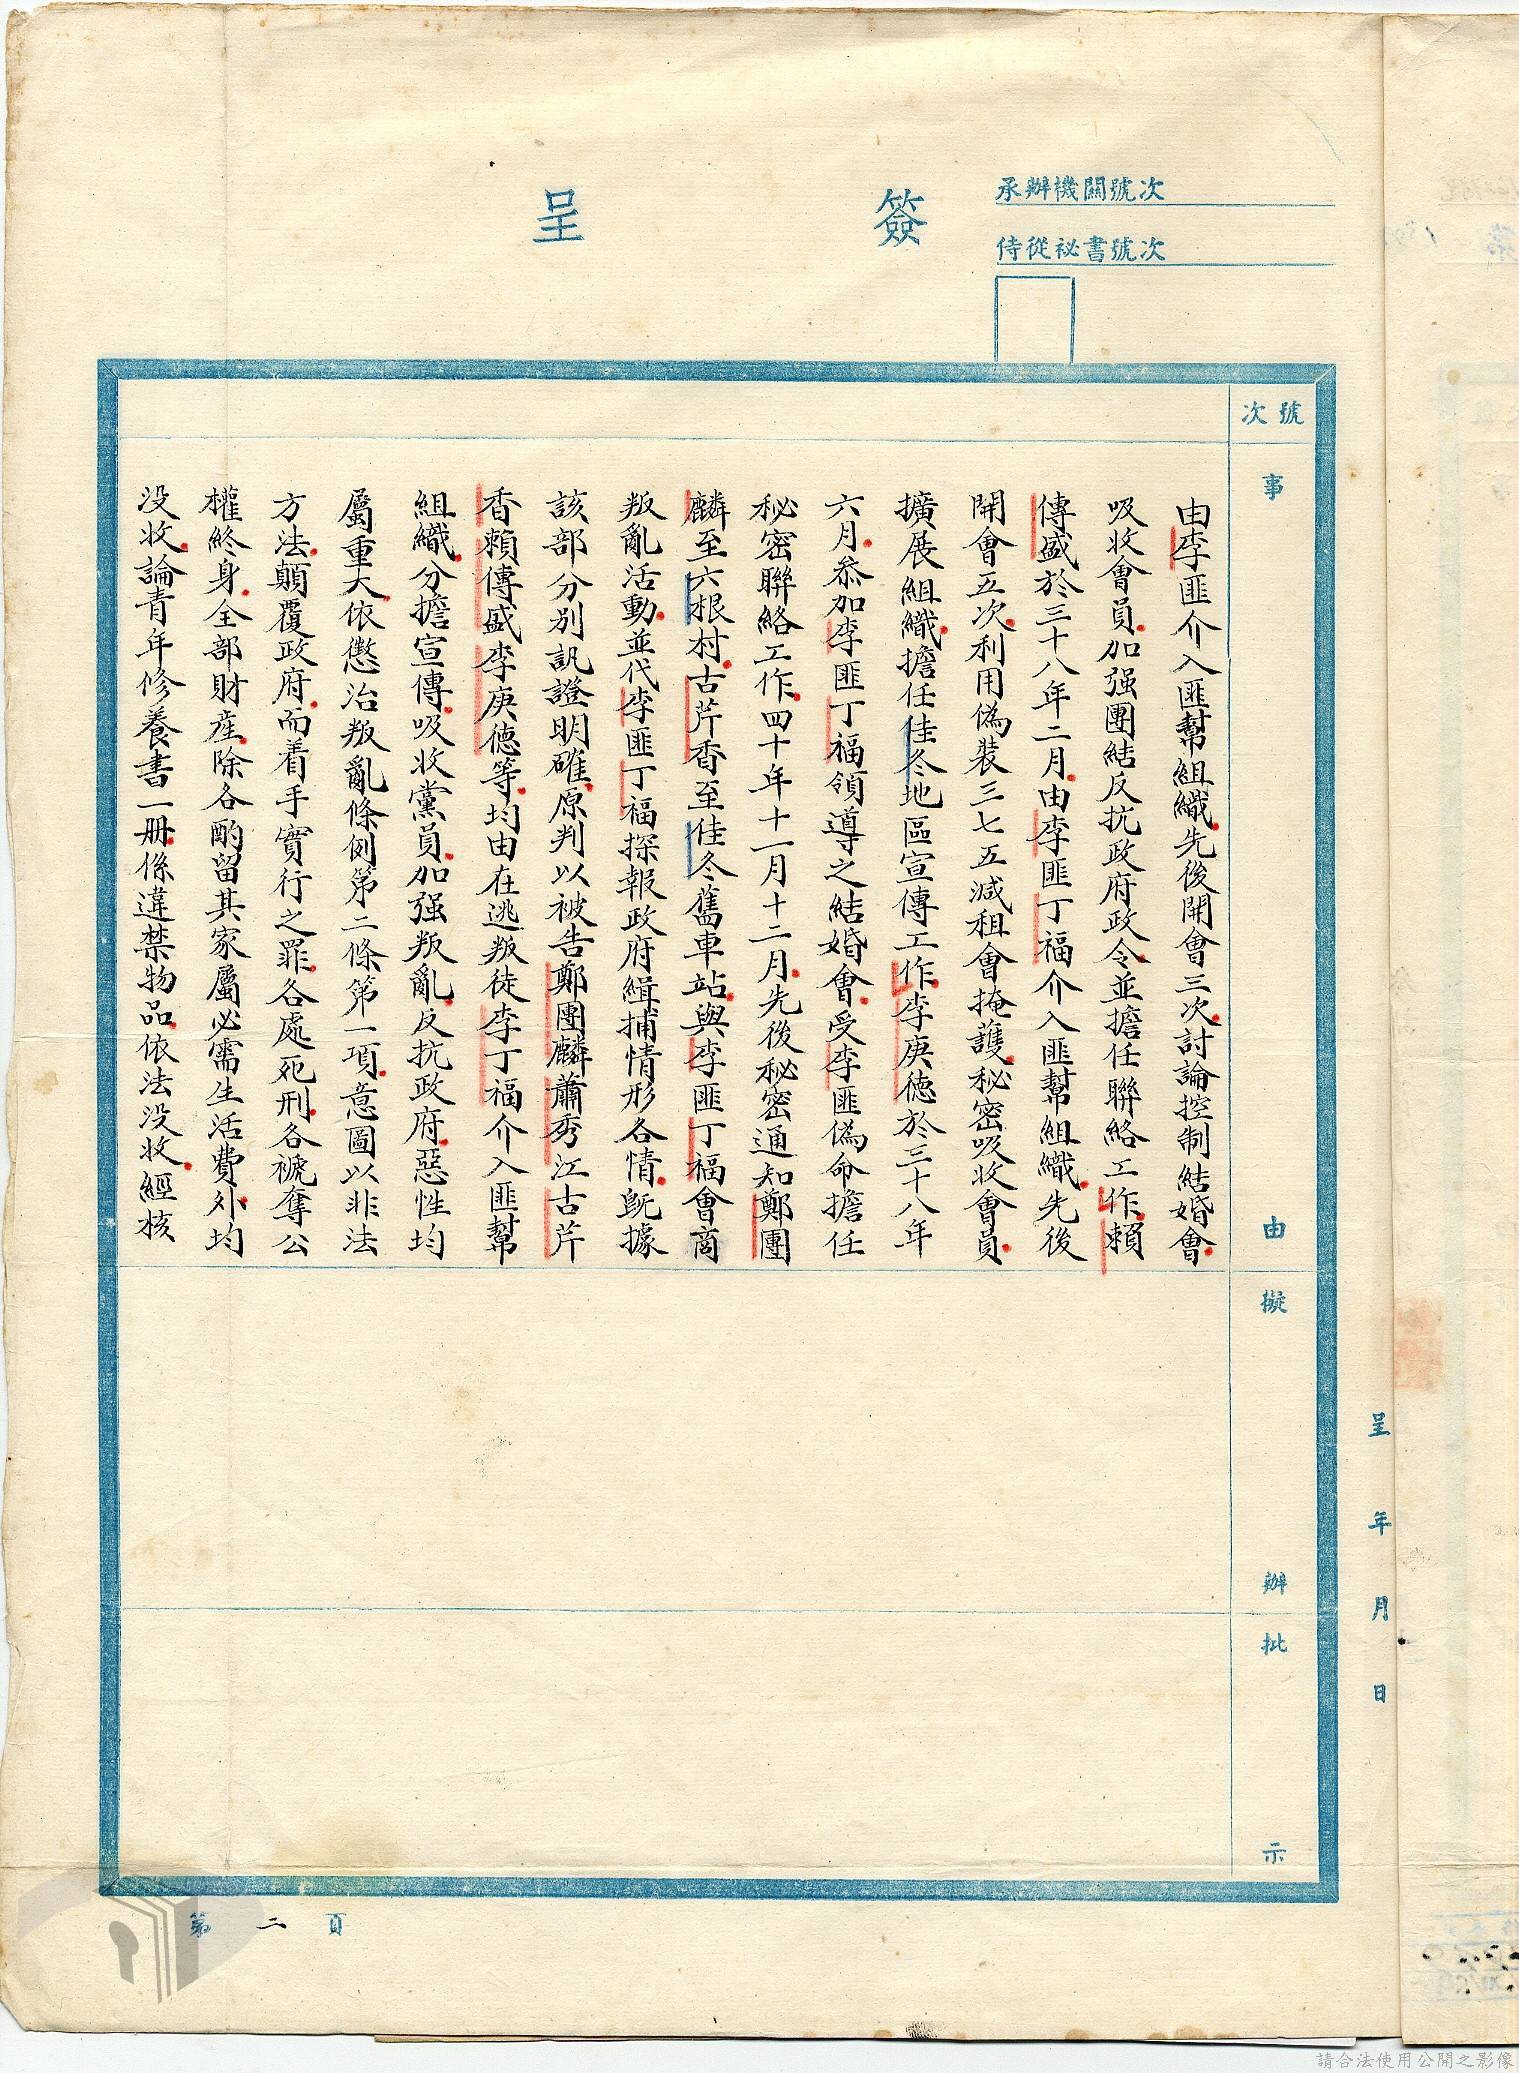 承辦機關號次
侍從祕書號次
簽呈
號次
事由
擬辦
批示
呈 年 月 日
由李匪介入匪幫組織先後開會三次討論控制結婚會
吸收會員加強團結反抗政府政令並擔任聯絡工作賴
傳盛於三十八年二月由李匪丁福介入匪幫組織先後
開會五次利用偽裝三七五減租會掩護秘密吸收會員
擴展組織擔任佳冬地區宣傳工作李庚德於三十八年
六月參加李匪丁福領導之結婚會受李匪偽命擔任
秘密聯絡工作四十年十一月十二月先後秘密通知鄭團
麟至六根村古芹香至佳冬舊車站與李匪丁福會商
叛亂活動並代李匪丁福探報政府緝捕情形各情既據
該部分別訊證明確原判以被告鄭團麟蕭秀江古芹
香賴傳盛李庚德等均由在逃叛徒李丁福介入匪幫
組織分擔宣傳吸收黨員加強叛亂反抗政府惡性均
屬重大依懲治叛亂條例第二條第一項意圖以非法
方法顛覆政府而着手實行之罪各處死刑各褫奪公
權終身全部財產除各酌留其家屬必需生活費外均
没收論青年修養書一册係違禁物品依法没收經核
第二頁
請合法使用公開之影像